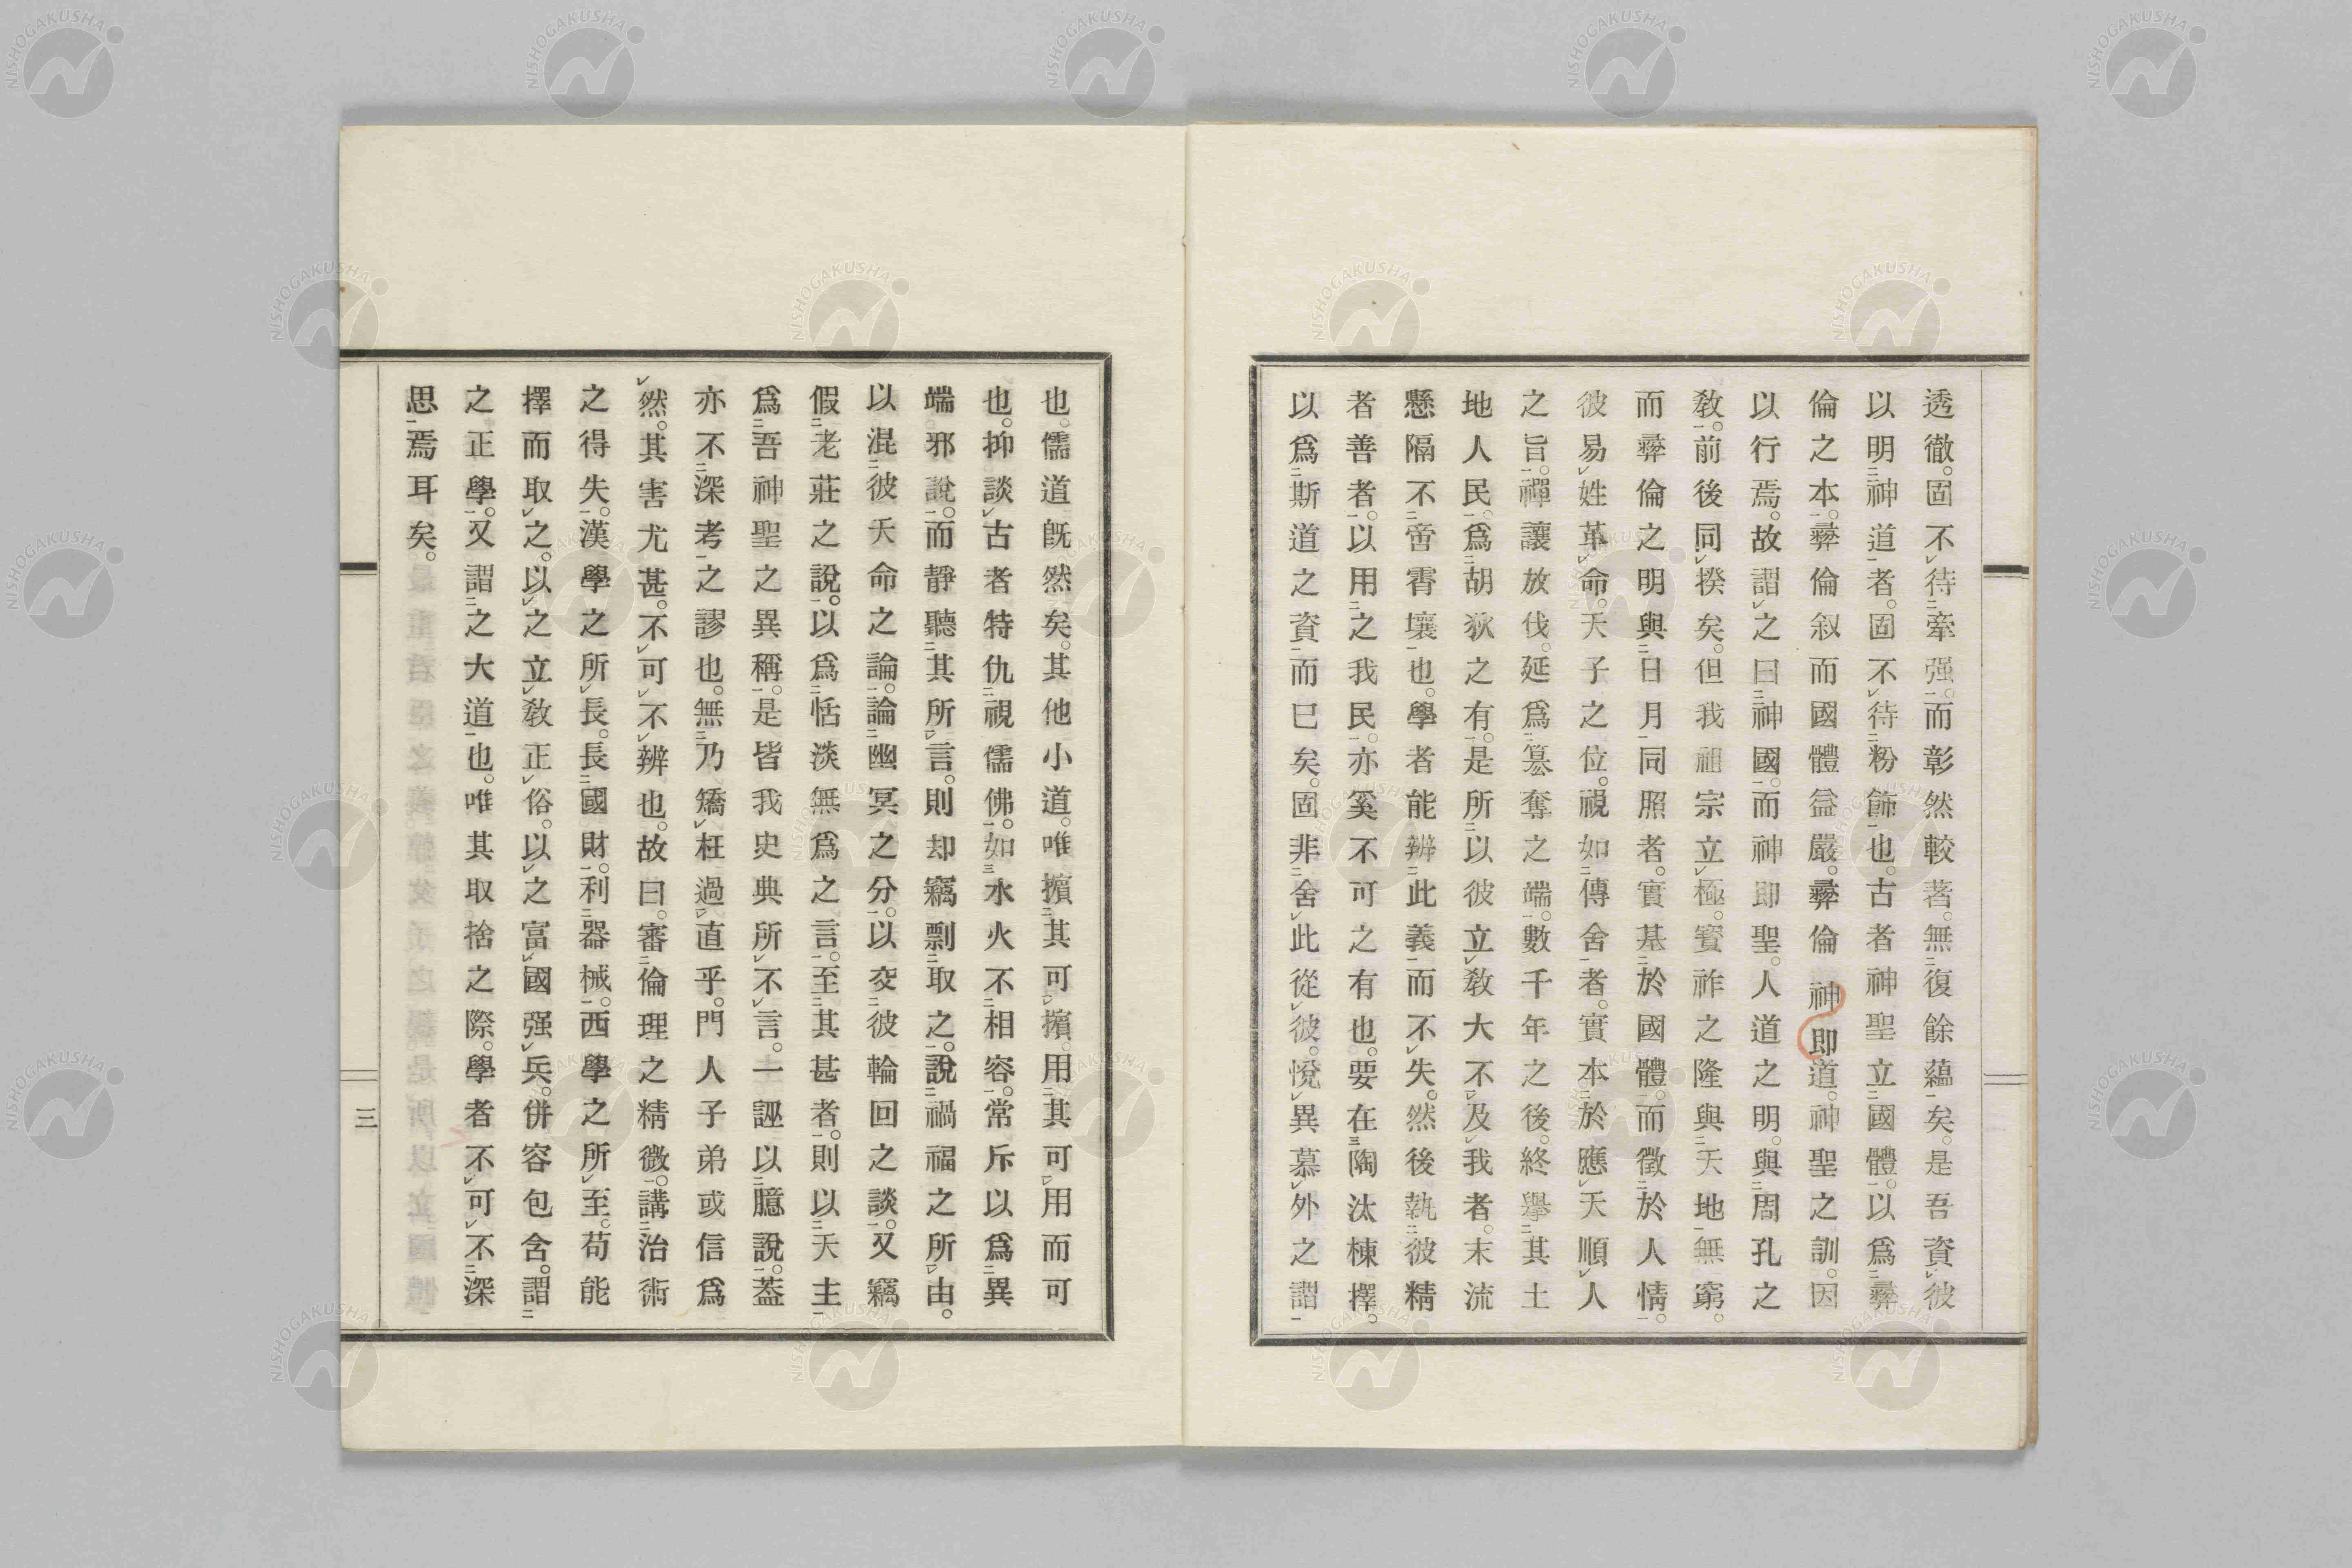 透徹。固不待牽强。而彰然較著。無復餘蘊矣。是吾資彼
以明神道者。固不待粉飾也。古者神聖立國體。以爲彜
倫之本。彜倫叙而國體益嚴。彜倫神即道。神聖之訓。因
以行焉。故謂之曰神國。而神即聖。人道之明。與周孔之
敎。前後同揆矣。但我祖宗立極。寳祚之隆與天地無窮。
而彜倫之明與日月同照者。實基於國體。而徵於人情。
彼易姓革命。天子之位。視如傳舍者。實本於應天順人
之旨。禪讓放伐。延爲簒奪之端。數千年之後。終擧其土
地人民。爲胡狄之有。是所以彼立敎大不及我者。末流
懸隔不啻霄壤也。學者能辨此義而不失。然後執彼精
者善者。以用之我民。亦奚不可之有也。要在陶汰棟擇。
以爲斯道之資而已矣。固非舍此從彼。悅異慕外之謂
也。儒道既然矣。其他小道。唯擯其可擯。用其可用而可
也。抑談古者特仇視儒佛。如水火不相容。常斥以爲異
端邪說。而靜聽其所言。則却竊剽取之。說禍福之所由。
以混彼天命之論。論幽冥之分。以交彼輪回之談。又竊
假老莊之說。以爲恬淡無爲之言。至其甚者。則以天主
爲吾神聖之異稱。是皆我史典所不言。一誣以臆說。蓋
亦不深考之謬也。無乃矯枉過直乎。門人子弟或信爲
然。其害尤甚。不可不辨也。故曰。審倫理之精微。講治術
之得失。漢學之所長。長國財。利器械。西學之所至。苟能
擇而取之。以之立敎正俗。以之富國强兵。併容包含。謂
之正學。又謂之大道也。唯其取捨之際。學者不可不深
思焉耳矣。
三
NISHOGAKUSHA